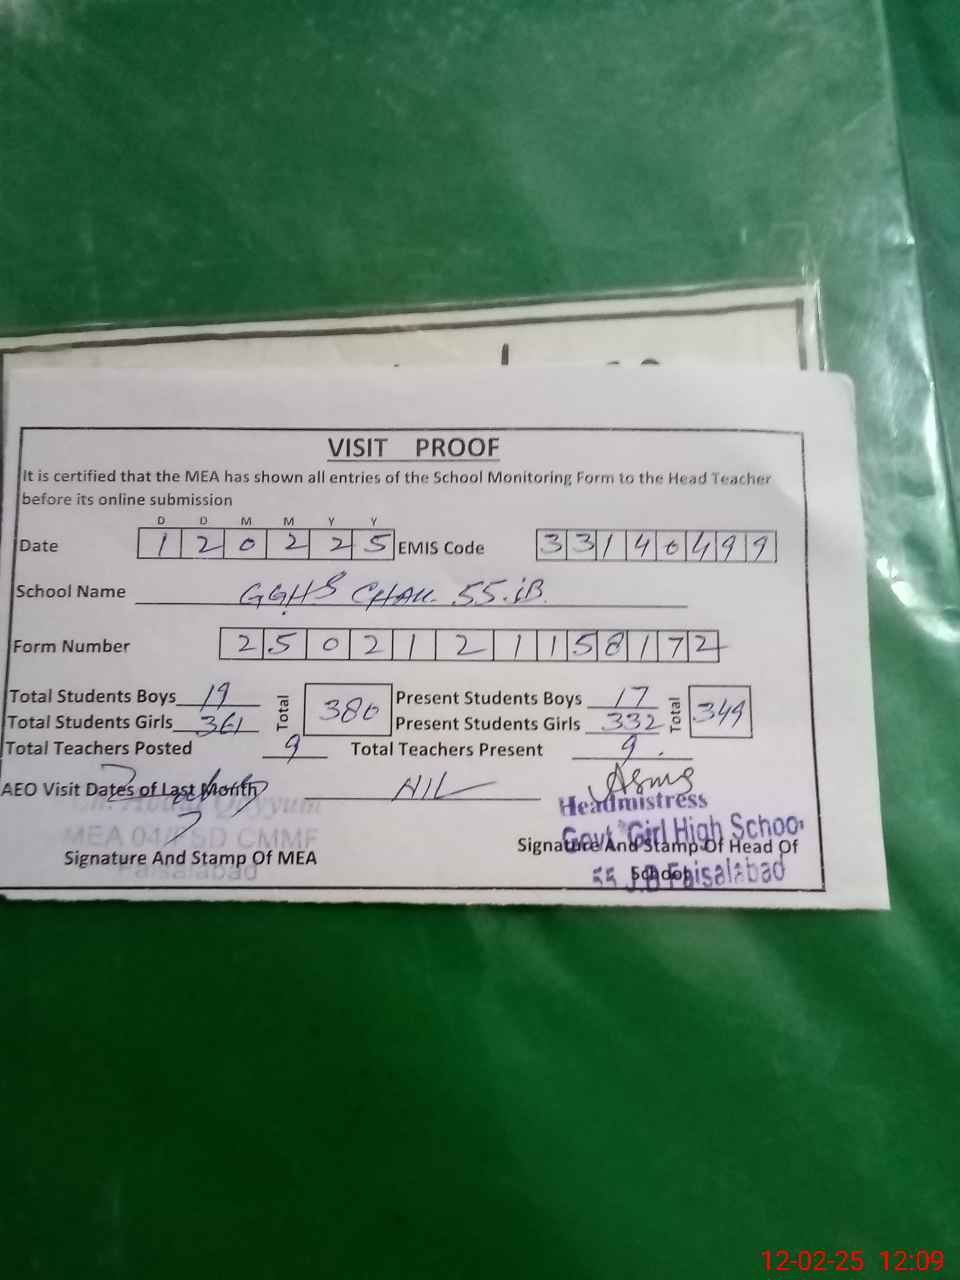 VISIT PROOF
It is certified that the MEA has shown all entries of the School Monitoring Form to the Head Teacher
before its online submission
D D M M Y Y
Date 1 2 0 2 2 5 EMIS Code 3 3 1 4 0 4 9 9
School Name GGHS CHAK. 55.JB.
Form Number 2 5 0 2 1 2 1 1 5 8 1 7 2
Total Students Boys 19 Total 380 Present Students Boys 17 Total 349
Total Students Girls 361 Present Students Girls 332
Total Teachers Posted 9 Total Teachers Present 9.
AEO Visit Dates of Last Month NIL
Headmistress
Qayyum
MEA 04/FSD CMMF
Govt Girl High School
Signature And Stamp Of MEA Signature And Stamp Of Head Of
School
Faisalabad
55 J.B Faisalabad
12-02-25 12:09